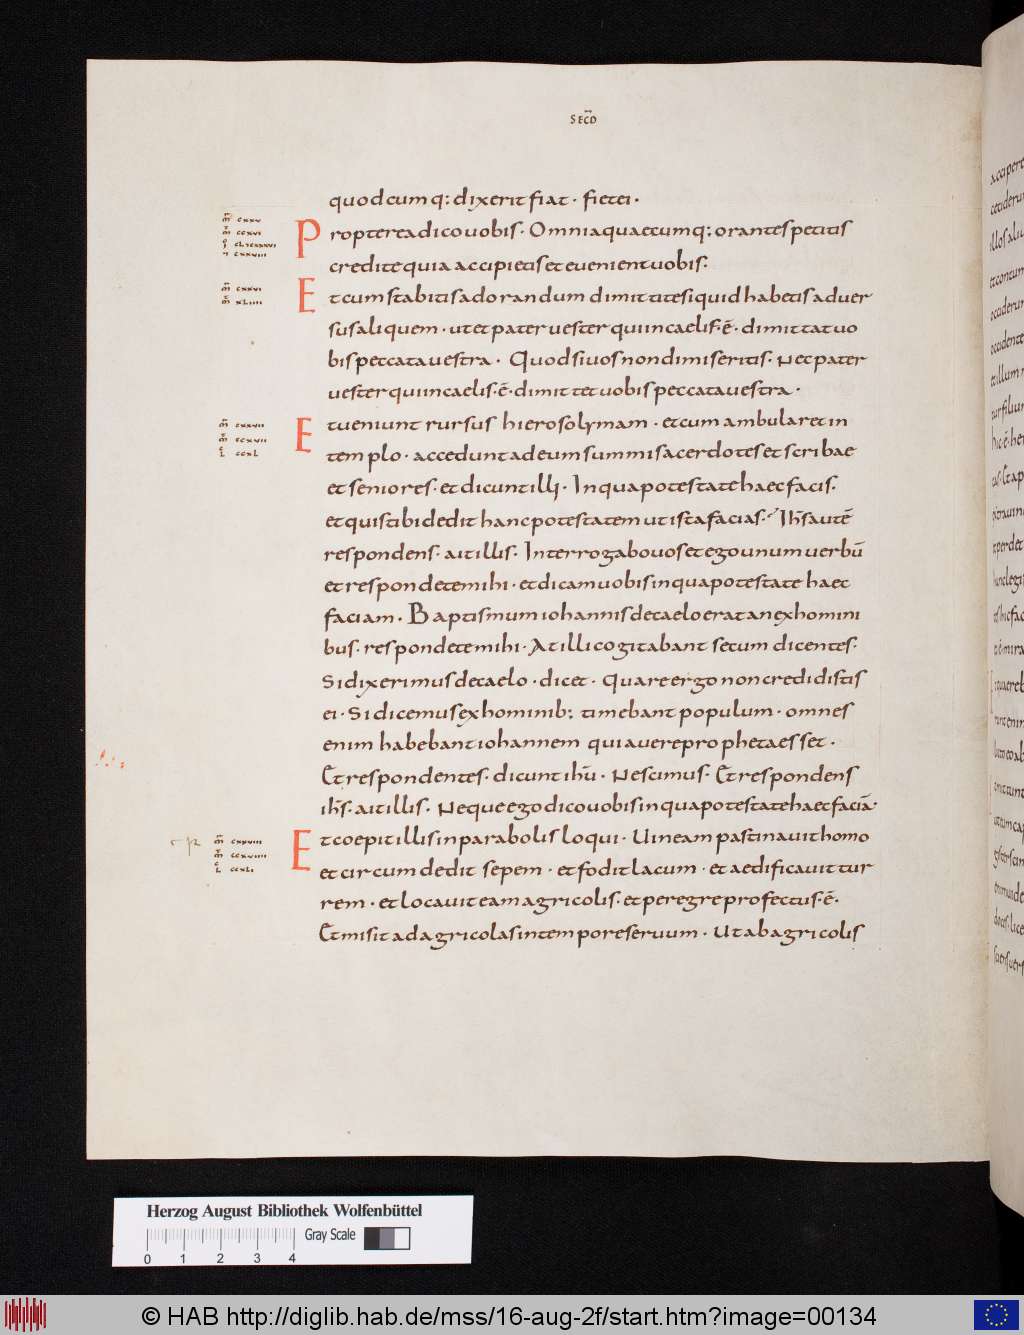 SECD̄
quodcumq: dixerit fiat · fiet ei ·
m̄ cxxv
m̄ ccxvi
m̄ cxxvi
m̄ xliiii
Propterea dico uobis · Omnia quaecumq: orantes petitis
credite quia accipietis et euenient uobis ·
Et cum stabitis ad orandum dimittite siquid habetis aduer
sus aliquem · ut et pater uester qui in caelis · ē · dimittat uo
bis peccata uestra · Quod si uos non dimiseritis · Nec pater
uester qui in caelis · ē · dimittet uobis peccata uestra ·
m̄ cxxvii
m̄ ccxvii
L ccxl
Et ueniunt rursus hierosolymam · et cum ambularet in
templo · accedunt ad eum summi sacerdotes et scribae
et seniores · et dicunt illi · In qua potestate haec facis ·
et quis tibi dedit hanc potestatem ut ista facias · Ih̄s autē
respondens · ait illis · Interrogabo uos et ego unum uerbū
et respondete mihi · et dicam uobis in qua potestate haec
faciam · Baptismum iohannis de caelo erat an ex homini
bus · respondete mihi · At illi cogitabant secum dicentes ·
Si dixerimus de caelo · dicet · Quare ergo non credidistis
ei · Si dicemus ex hominib: timebant populum · omnes
enim habebant iohannem quia uere propheta esset ·
Et respondentes · dicunt ihū · Nescimus · Et respondens
ih̄s · ait illis · Neque ego dico uobis in qua potestate haec faciā ·
m̄ cxxviii
m̄ ccxviiii
L ccxli
Et coepit illis in parabolis loqui · Uineam pastinauit homo
et circumdedit sepem · et fodit lacum · et aedificauit tur
rem · et locauit eam agricolis · et peregre profectus · ē ·
Et misit ad agricolas in tempore seruum · Ut ab agricolis
Herzog August Bibliothek Wolfenbüttel
Gray Scale
0 1 2 3 4
© HAB http://diglib.hab.de/mss/16-aug-2f/start.htm?image=00134